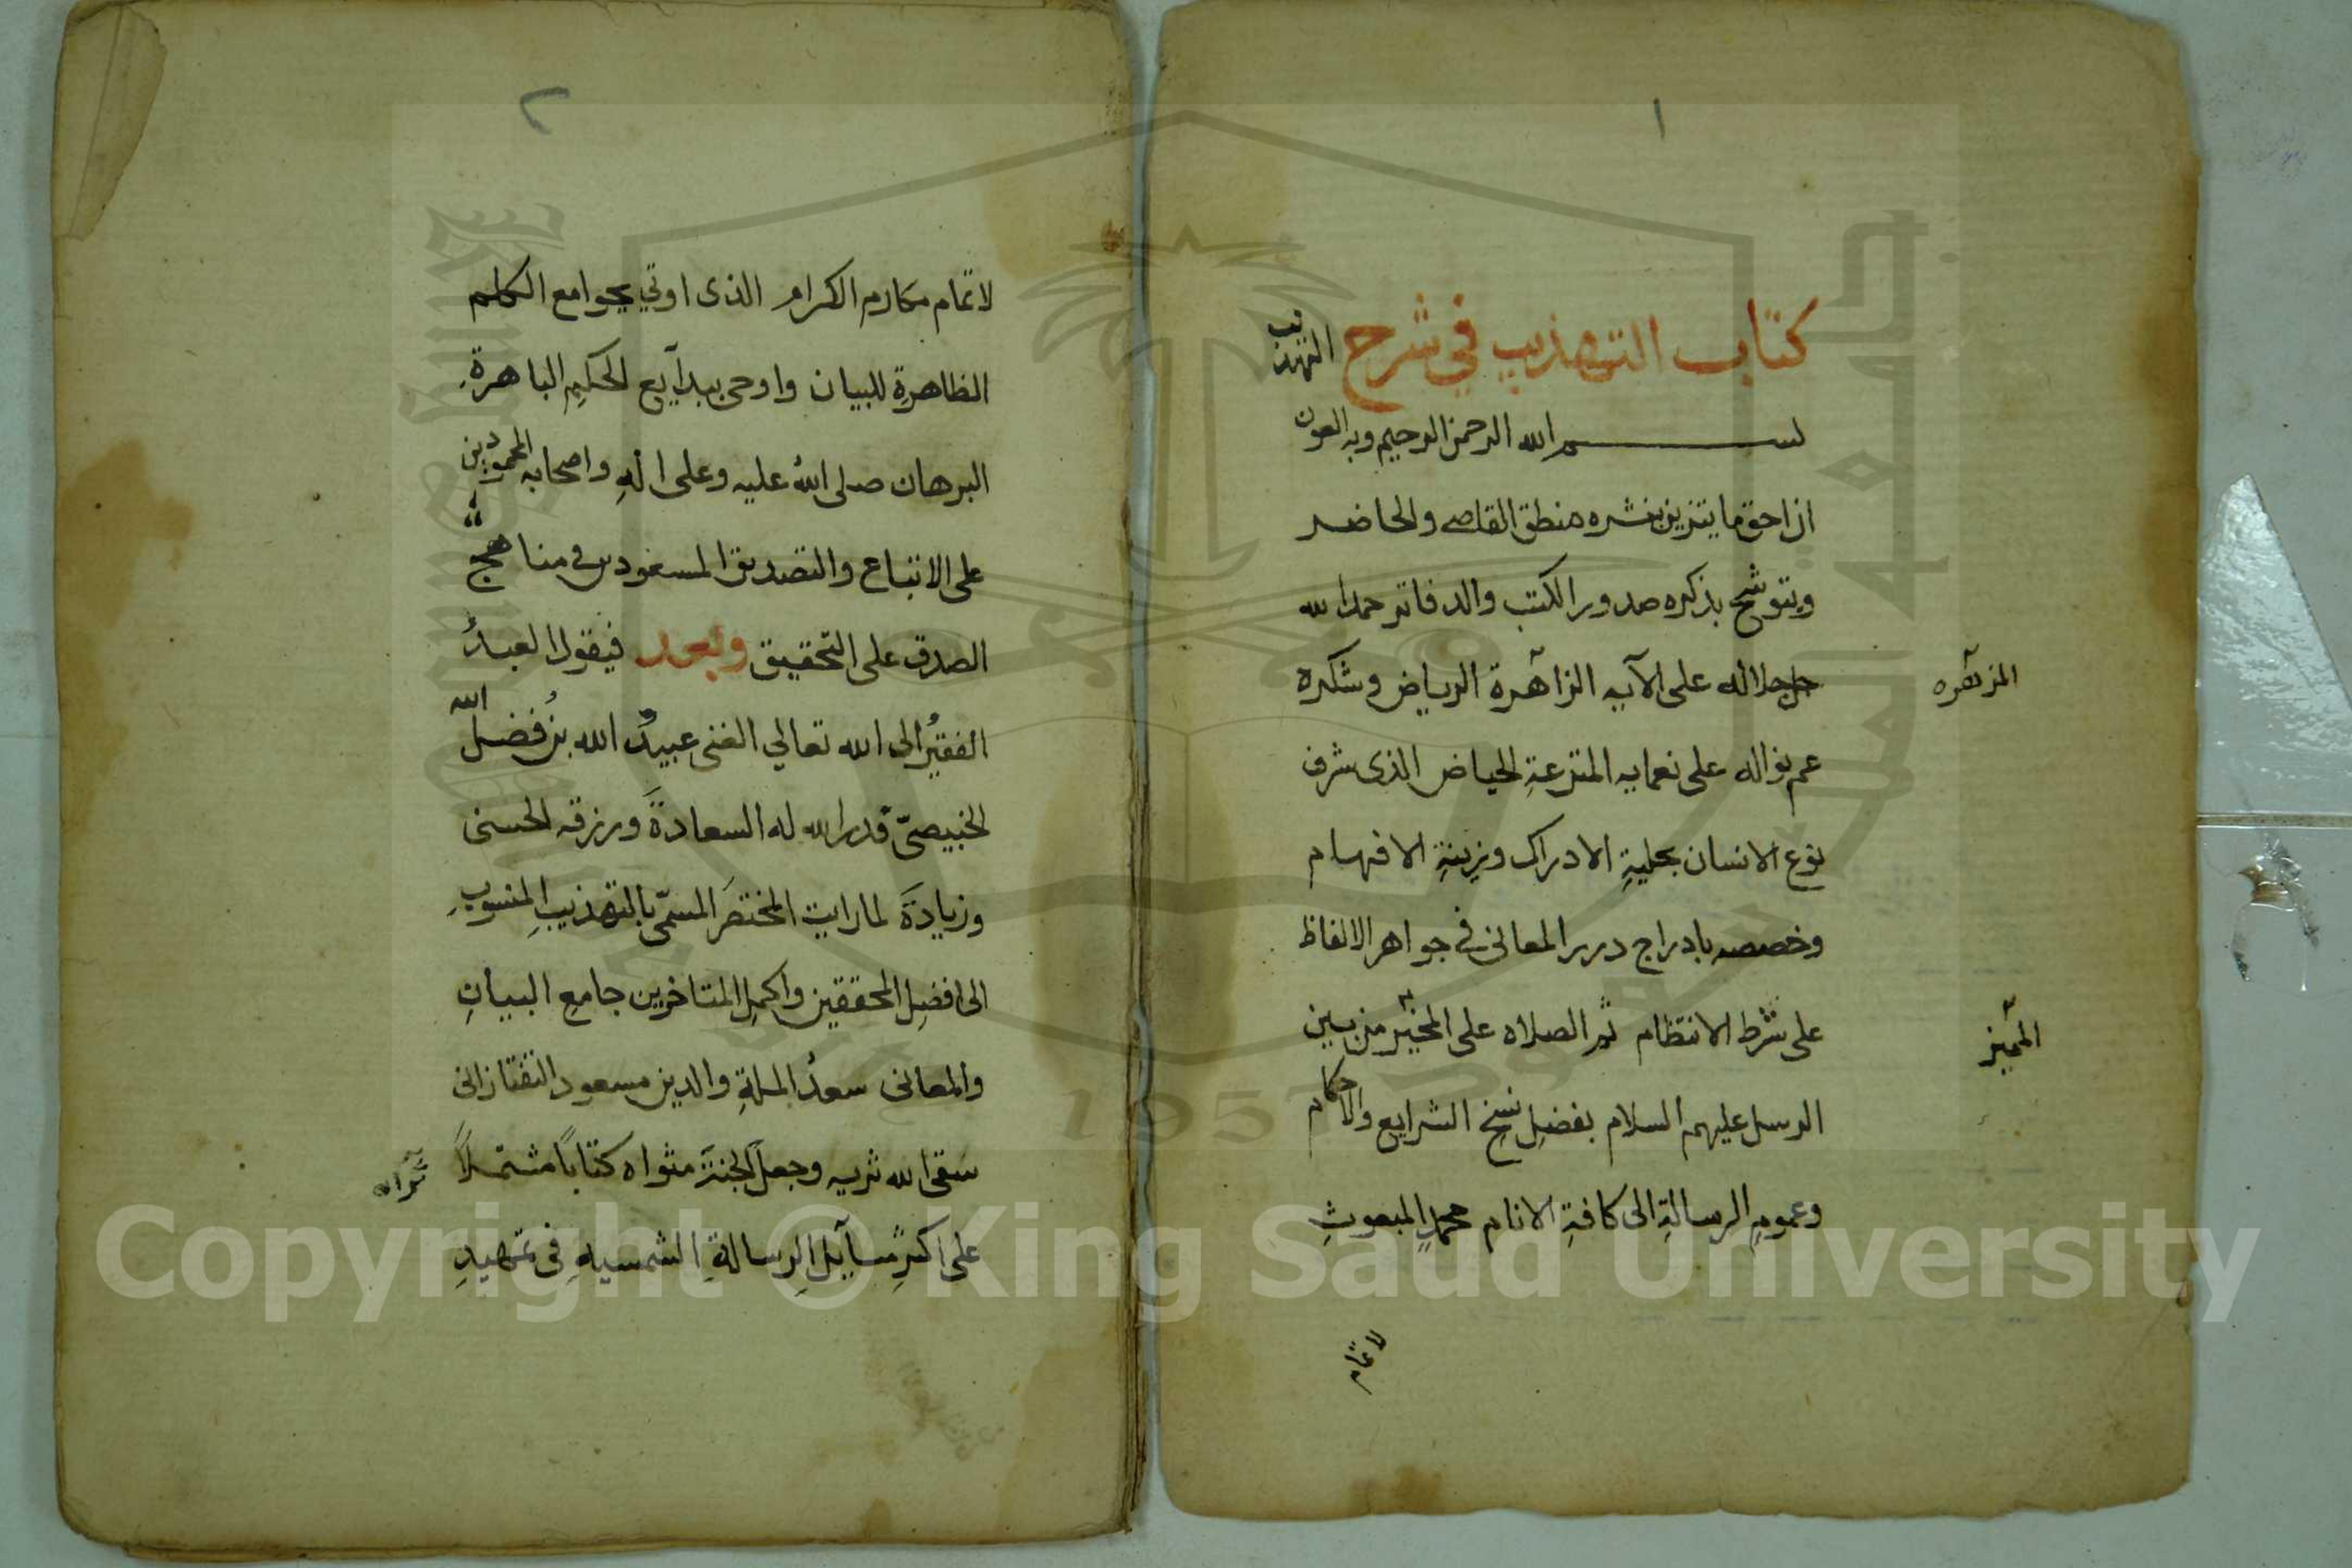 ١
كتاب التهذيب في شرح التهذيب
بسم الله الرحمن الرحيم وبه العون
ان احق ما يتزين بنشره منطق القاصى والحاضر
ويتوشح بذكره صدور الكتب والدفاتر حمد الله
جل جلاله على الآيه الزاهرة الرياض وشكره
المزهره
عم نواله على نعمايه المترعةِ الحياض الذى شرف
نوع الانسان بحليةِ الادراك وزينةِ الافهام
وخصصه بادراج درر المعانى فى جواهر الالفاظ
على شرط الانتظام ثم الصلاه على المخيّر من بين
المميز
الرسل عليهم السلام بفضلِ نسخِ الشرايع والاحكام
وعمومِ الرسالةِ الى كافةِ الانام محمدٍ المبعوثِ
لاتمام
٢
لاتمام مكارم الكرام الذى اوتي بجوامع الكلم
الظاهرةِ للبيان واوحى ببدآيع الحكمِ الباهرةِ
البرهان صلى اللهُ عليه وعلى الهِ واصحابه المحمودين
على الاتباع والتصديق المسعودين فى مناهج
الصدق على التحقيق وبعد فيقول العبدُ
الفقيرُ الى الله تعالي الغنى عبيدُ الله بنُ فضل الله
الخبيصىّ قدر الله له السعادةَ ورزقه الحسنى
وزيادةَ لما رايت المختصَر المسمّى بالتهذيبِ المنسوبِ
الى افضلِ المحققين واكملِ المتاخرين جامعِ البيانِ
والمعانى سعدُ الملةِ والدين مسعود التفتازانى
سقى الله ثريه وجعل الجنةَ مثواه كتابًا مشتملاً
ثراه
على اكثرِ مسآيلِ الرسالةِ الشمسيهِ فى تمهيدِ
Copyright © King Saud University
1957